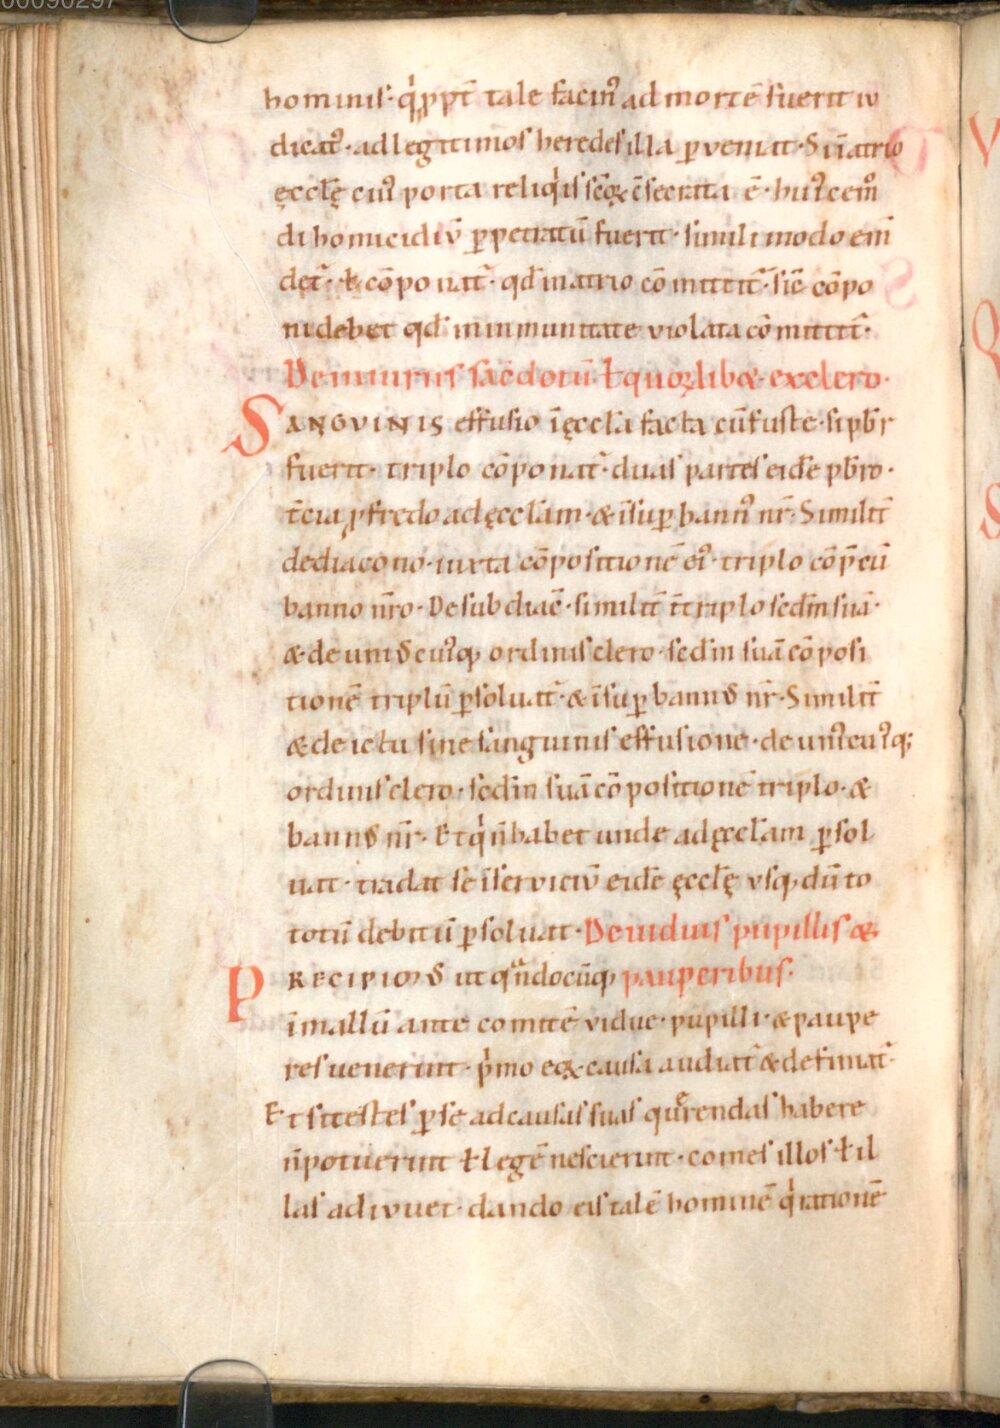 00090297
hominis· q̇ ꝓpt̄ tale facin᷒ ad mortē fuerit iu
dicat᷒· ad legittimos heredes illa ꝑveniat· Si in atrio
ęccłę cui᷒ porta reliq̇is scōꝝ ↄ̄secrata ē· hui᷒cem̊
di homicidiū ꝑpetratū fuerit· simili modo em̄
det᷑· ł cōponat᷑· qđ in atrio cōmittit᷑· sic̄ cōpo
ni debet qđ in inmunitate violata cōmittit᷑·
De iniuriis sac̄dotū ł quoꝝlib& ex clero·
SANGVINIS effusio ī ęccła facta cū fuste· si pb̄r
fuerit· triplo cōponat᷑· duas partes eidē pb̄ro·
t̄cia ꝓ fredo ad ęccłam· & īsuꝑ bann᷒ nr̄· Similit̄
de diacono· iuxta cōpositionē ei᷒· triplo cōp̄ cū
banno nr̄o· De subdiac̄· similit̄ īt̄riplo scđm suā·
& de uni᷒cui᷒q, ordinis clero· scđm suā cōposi
tionē triplū ꝑsoluat᷑· & īsuꝑ bann᷒ nr̄· Similit̄
& de ictu sine sanguinis effusione· de uni᷒cui᷒q;
ordinis clero· scđm suā cōpositionē triplo· &
bann᷒ nr̄· Et q̇ n̄ habet unde ad ęccłam ꝑsol
uat· tradat se ī serviciū eidē ęccłę vsq, dū to
totū debitū ꝑsoluat· De viduis pupillis &
PRECIPIM᷒ ut qn̄docūq, pauperibus·
ī mallū ante comitē vidue· pupilli· & paupe
res uenerint· p̍mo eoꝝ causa audiat᷑ & definiat᷑·
Et si testes ꝑ se ad causas suas qu̅rendas habere
n̄ potuerint ł legē nescierint· comes illos ł il
las adiuuet· dando eis talē hominē q̇ rationē